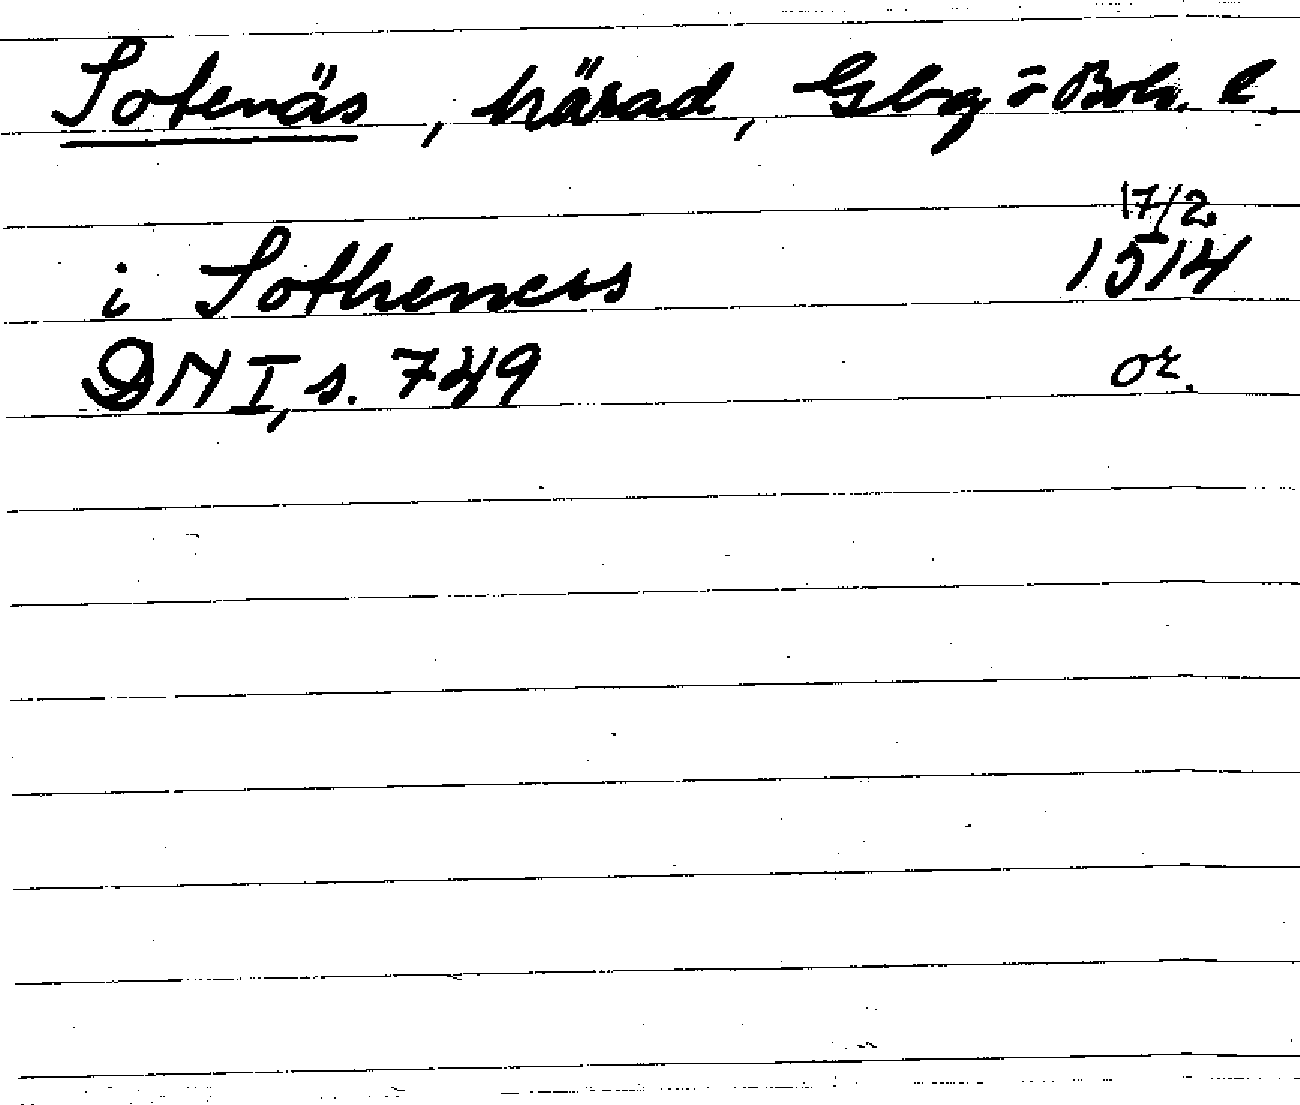 Sotenäs, härad, Gbg o Boh. l.
17/2
i Sotheness 1514
DN I, s. 749 or.